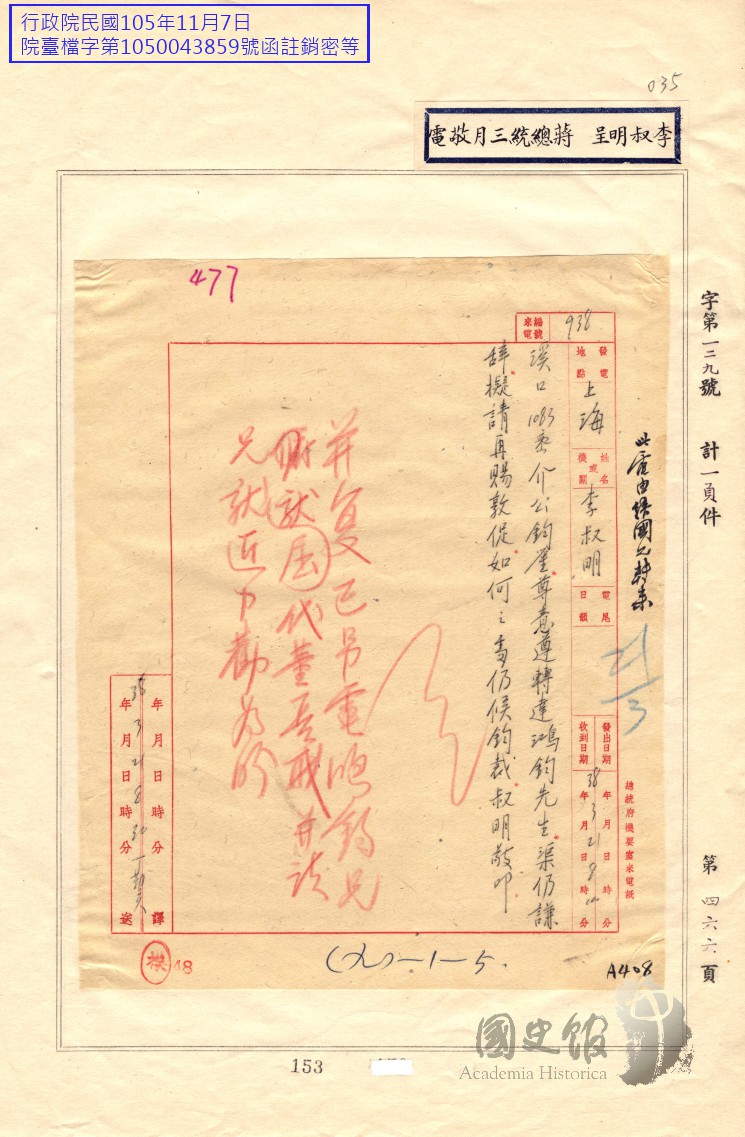 行政院民國105年11月7日
院臺檔字第1050043859號函註銷密等
035
李叔明呈 蔣總統三月敬電
字第一二九號 計一頁件
第四六六頁
477
來電編號 938
發電地點 上海
姓名或機關 李叔明
電尾日韻
發出日期 年月日時分
收到日期 38年3月21日8時10分
總統府機要室來電紙
此電由經國兄轉來
溪口1083密介公鈞鑒尊意遵轉達鴻鈞先生渠仍謙
辭擬請再賜敦促如何之處仍候鈞裁叔明敬叩
并復已另電鴻鈞兄
屈代董長職并請
兄就近力勸為盼
年月日時分譯
38年3月21日8時30分送
(九)-1-5.
48
A408
國史館
Academia Historica
153